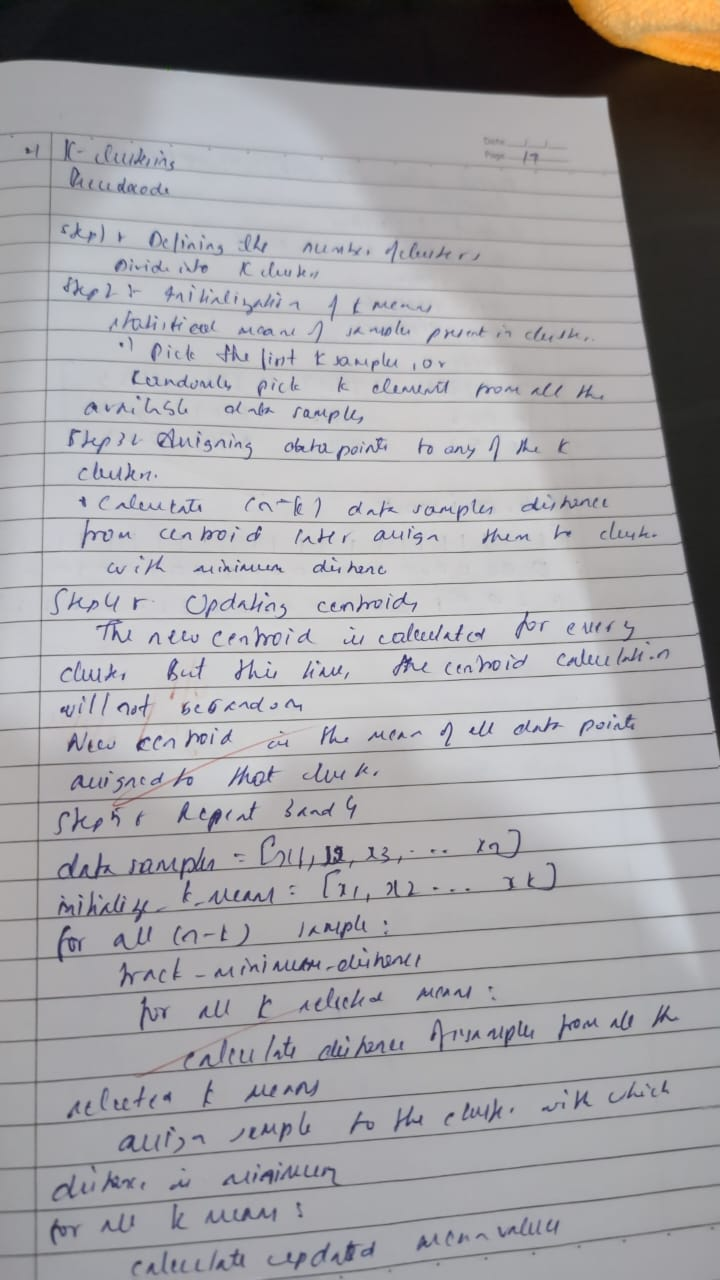 Date
Page 17
2) K-clustering
Pseudocode
Step 1: Defining the number of clusters
Divide into K clusters
Step 2: Initialization of k means
statistical mean of samples present in cluster.
•) Pick the first k samples, or
Randomly pick k elements from all the
available data samples
Step 3: Assigning data points to any of the K
clusters.
* Calculate (n-k) data samples distance
from centroid later assign them to cluster
with minimum distance
Step 4: Updating centroids
The new centroid is calculated for every
cluster But this time, the centroid calculation
will not be random
New centroid is the mean of all data points
assigned to that cluster.
Step 5: Repeat 3 and 4
data samples = [x1, x2, x3, ... xn]
initialize_k_means = [x1, x2 ... xk]
for all (n-k) sample:
track-minimum-distance
for all k selected means:
calculate distance of samples from all the
selected k means
assign sample to the cluster with which
distance is minimum
for all k means:
calculate updated mean values